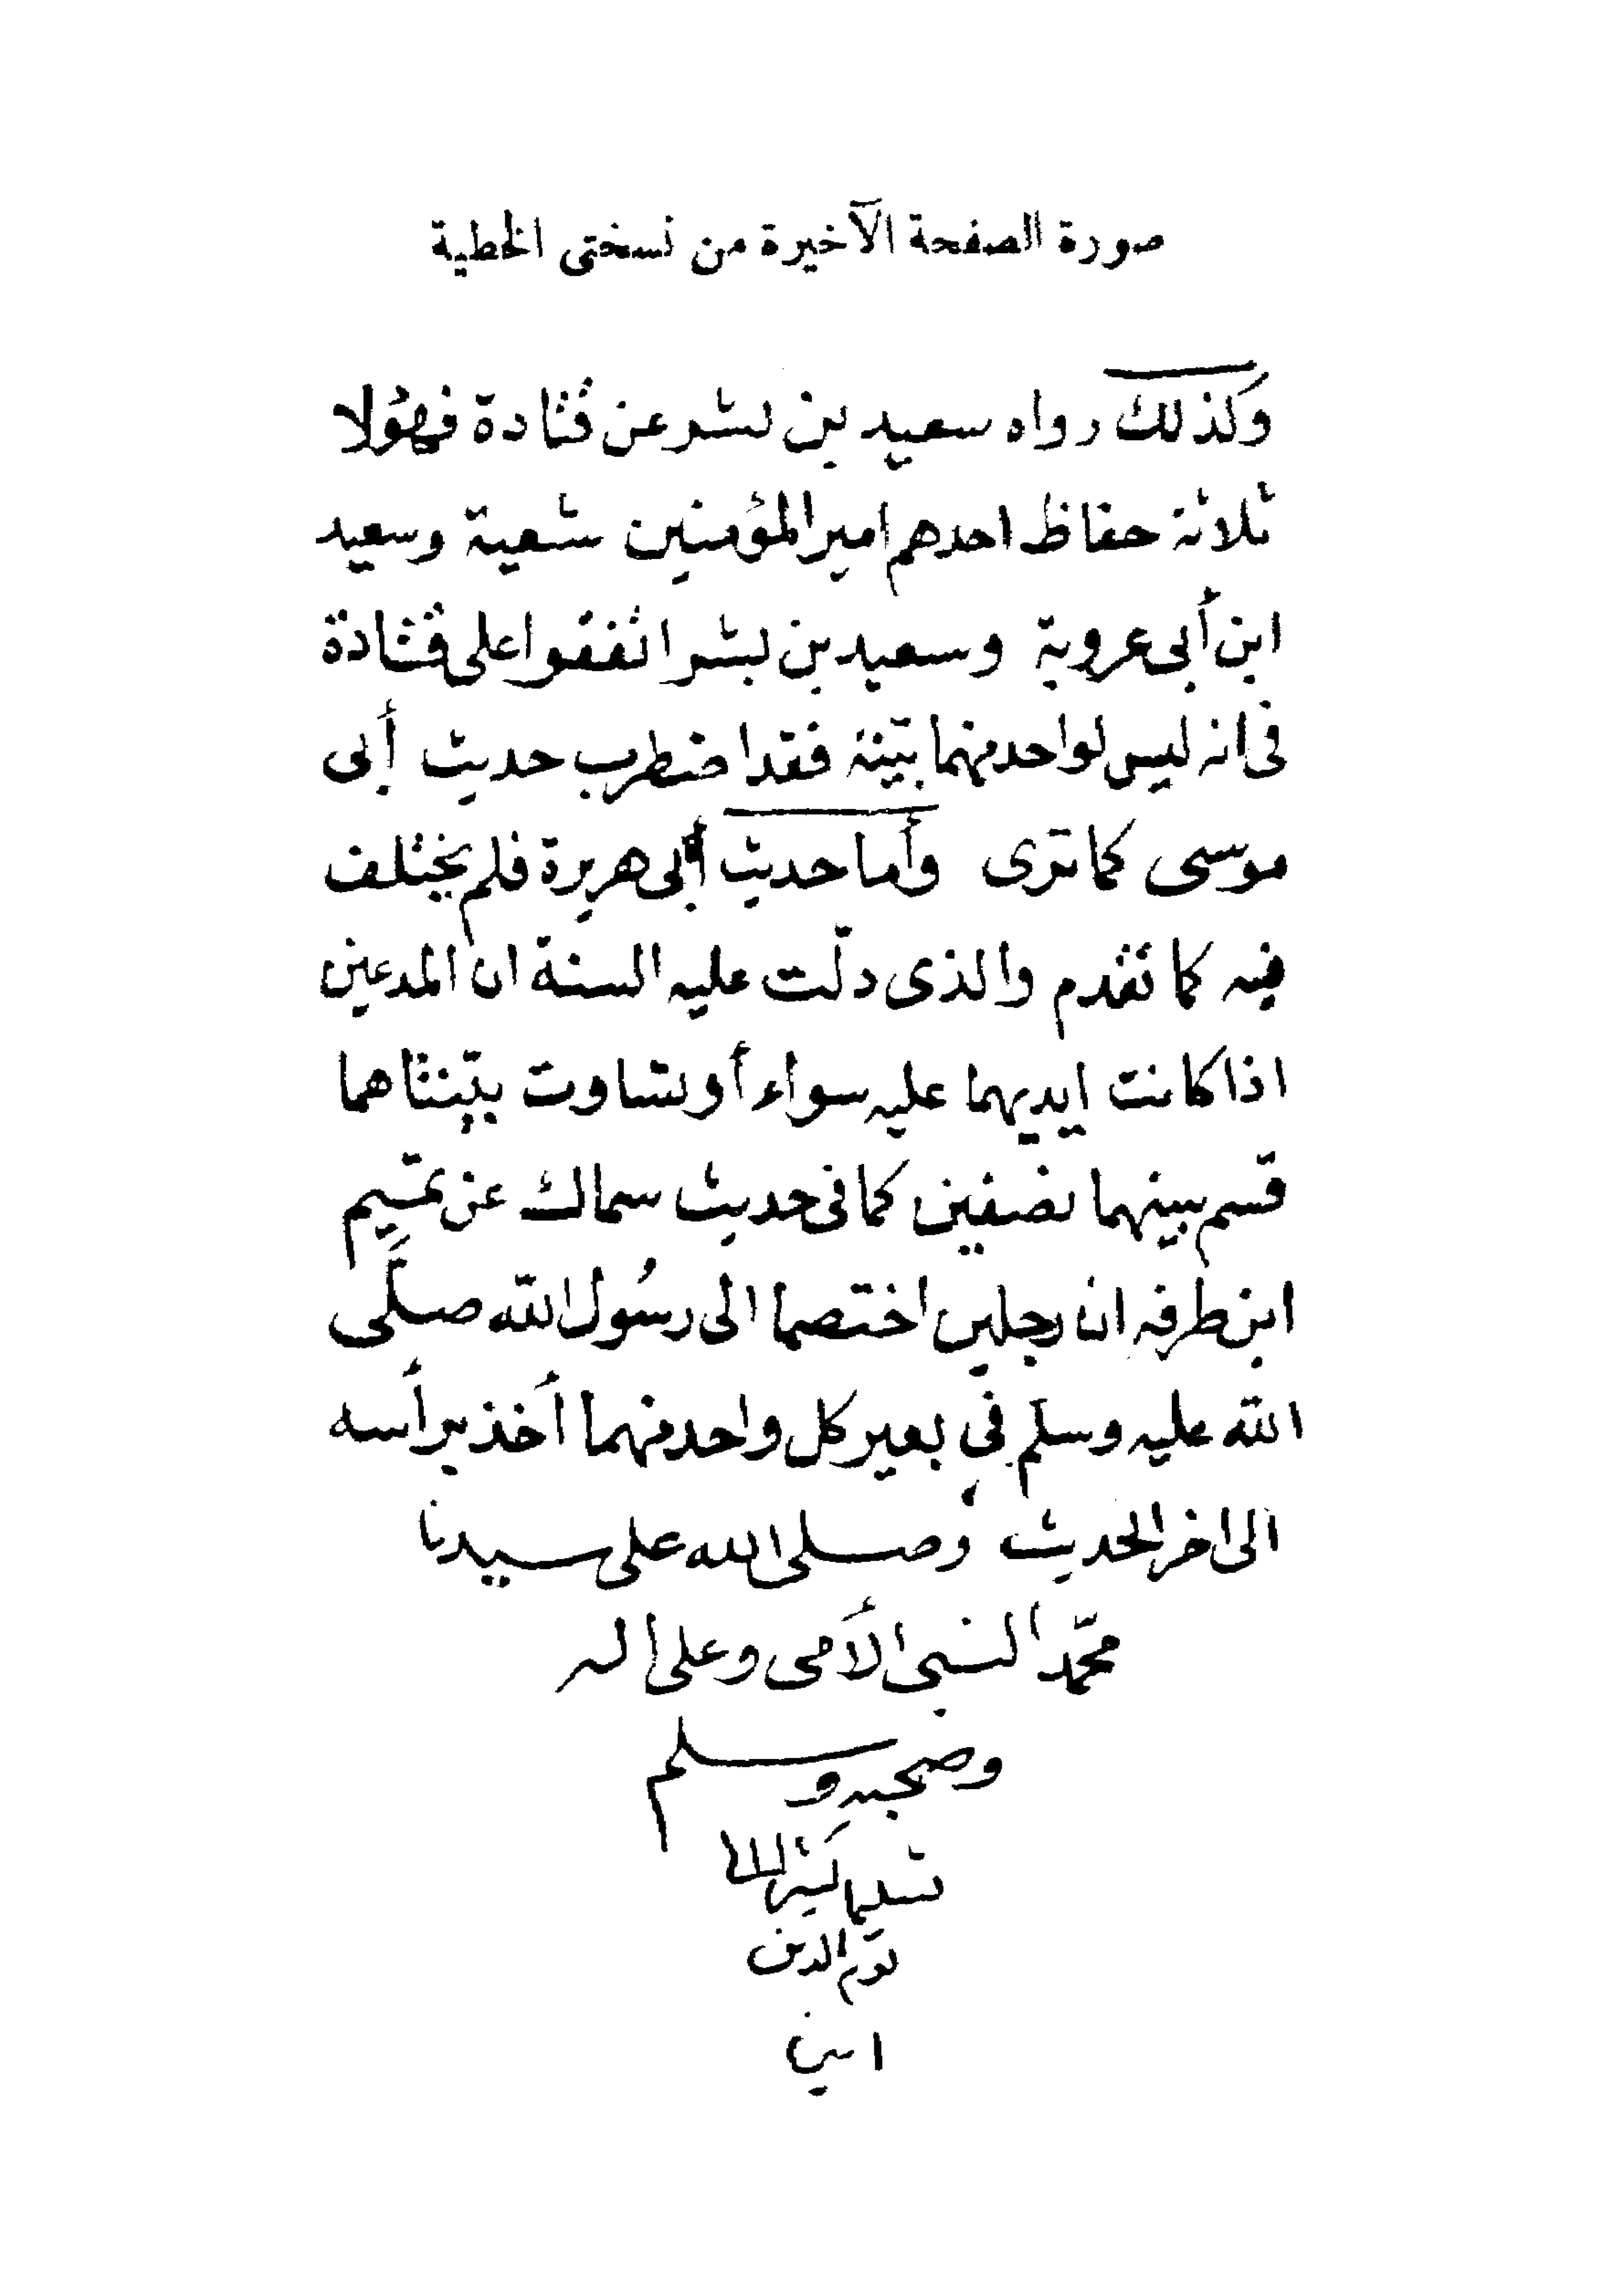 صورة الصفحة الآخيرة من نسختى الخطية
وكذلك رواه سعيد بن بشر عن قتادة فهؤلا
ثلاثة حفاظ احدهم امير المؤمنين شعبة وسعيد
ابن أبى عروبة وسعيد بن بشر اتفقوا على قتادة
فى انه ليس لواحد منهما بيّنة فقد اضطرب حديث أبى
موسى كما ترى وأما حديث أبى هريرة فلم يختلف
فيه كما تقدم والذى دلّت عليه السنة ان المدعين
اذا كانت ايديهما عليه سواء أو تساوت بيّنتاهما
قسم بينهما نصفين كما فى حديث سماك عن تميم
ابن طرفه ان رجلين اختصما الى رسُول اللّه صلَّى
اللّه عليه وسلم فى بعير كل واحد منهما أخذ برأسه
الى اخر الحديث وصلى الله على سيدنا
محمّد النبى الأمى وعلى اله
وصحبه وسلم
تسليما كثيرا الى
يوم الدين
امين